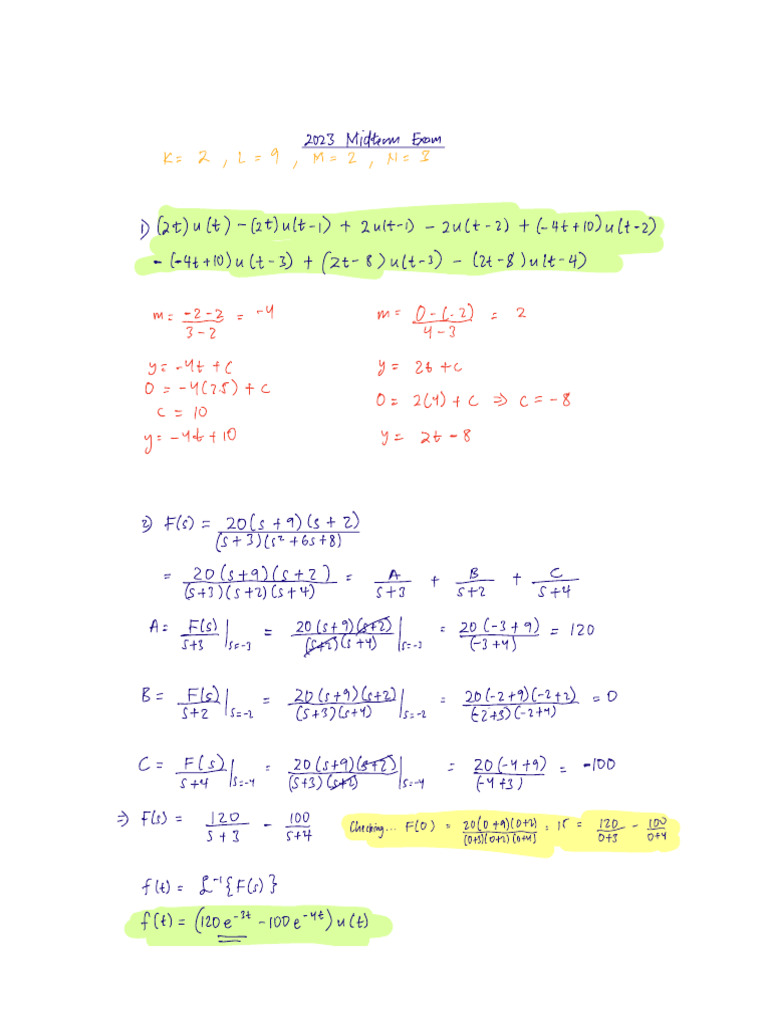 2023 Midterm Exam
K = 2 , L = 9 , M = 2 , N = 3
1) (2t)u(t) - (2t)u(t-1) + 2u(t-1) - 2u(t-2) + (-4t+10)u(t-2)
- (-4t+10)u(t-3) + (2t-8)u(t-3) - (2t-8)u(t-4)
m = (-2-2)/(3-2) = -4    m = (0-(-2))/(4-3) = 2
y = -4t + c    y = 2t + c
0 = -4(2.5) + c    0 = 2(4) + c ⇒ c = -8
c = 10
y = -4t + 10    y = 2t - 8
2) F(s) = 20(s+9)(s+2)/((s+3)(s²+6s+8))
= 20(s+9)(s+2)/((s+3)(s+2)(s+4)) = A/(s+3) + B/(s+2) + C/(s+4)
A = F(s)/(s+3) |s=-3 = 20(s+9)(s+2)/((s+2)(s+4)) |s=-3 = 20(-3+9)/(-3+4) = 120
B = F(s)/(s+2) |s=-2 = 20(s+9)(s+2)/((s+3)(s+4)) |s=-2 = 20(-2+9)(-2+2)/((-2+3)(-2+4)) = 0
C = F(s)/(s+4) |s=-4 = 20(s+9)(s+2)/((s+3)(s+2)) |s=-4 = 20(-4+9)/(-4+3) = -100
⇒ F(s) = 120/(s+3) - 100/(s+4)    Checking... F(0) = 20(0+9)(0+2)/((0+3)(0+2)(0+4)) = 15 = 120/(0+3) - 100/(0+4)
f(t) = ℒ⁻¹{F(s)}
f(t) = (120e^(-3t) - 100e^(-4t))u(t)